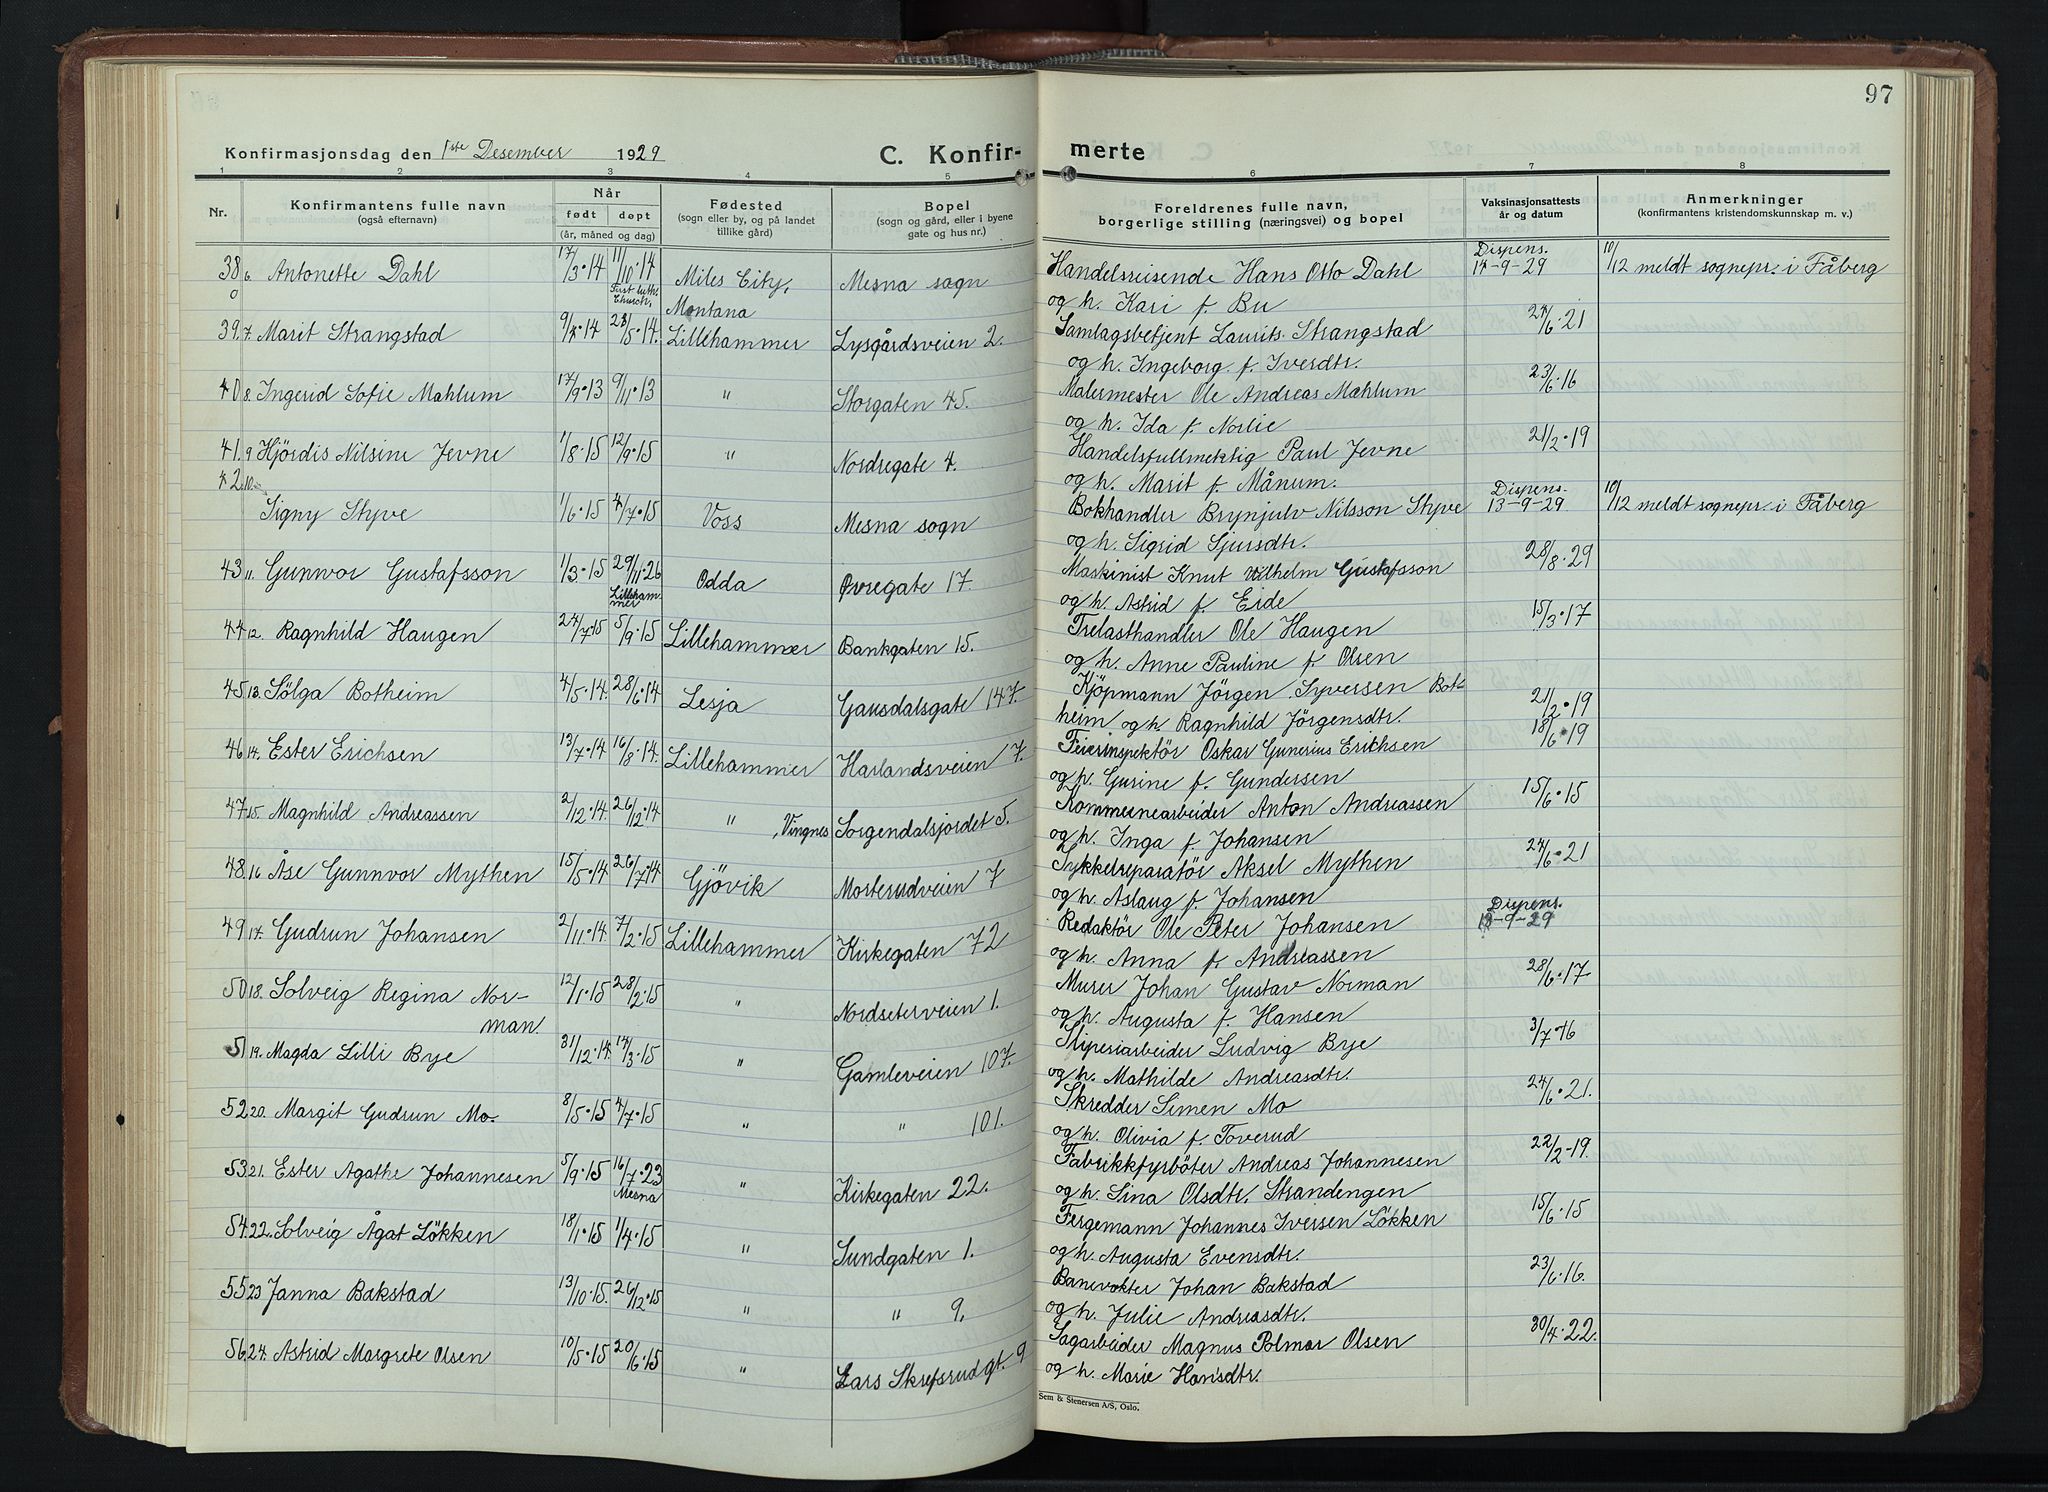 97
Konfirmasjonsdag den 1ste Desember 1929
C. Konfir-
merte
1 2 3 4 5 6 7 8
Nr.
Konfirmantens fulle navn
(også efternavn)
Når
født døpt
(år, måned og dag)
Fødested
(sogn eller by, og på landet
tillike gård)
Bopel
(sogn og gård, eller i byene
gate og hus nr.)
Foreldrenes fulle navn,
borgerlige stilling (næringsvei) og bopel
Vaksinasjonsattests
år og datum
Anmerkninger
(konfirmantens kristendomskunnskap m. v.)
38 6 Antonette Dahl 17/3·14 11/10·14 Miles City, Mesna sogn Handelsreisende Hans Otto Dahl Dispens. 10/12 meldt sognepr. i Fåberg
0 First luth. Church, Montana og h. Kari f. Bu 14-9-29
39 7 Marit Strangstad 9/4·14 23/5·14. Lillehammer Lysgårdsveien 2. Samlagsbetjent Laurits Strangstad 24/6·21
og h. Ingeborg f. Iverdtr.
40 8. Ingerid Sofie Mæhlum 17/9·13 9/11·13 " Storgaten 45. Malermester Ole Andreas Mæhlum 23/6·16
og h. Ida f. Norlie
41. 9 Hjördis Nilsine Jevne 1/8·15 12/9·15 " Nordregate 4. Handelsfullmektig Paul Jevne 21/2·19
og h. Marit f. Månum.
42. 10. Signy Styve 1/6·15 4/7·15 Voss Mesna sogn Bokhandler Brynjulv Nilsson Styve Dispens. 13-9-29 10/12 meldt sognepr. i Fåberg
og h. Sigrid Sjursdtr.
43 11. Gunvor Gustafsson 1/3·15 29/11·26 Odda Øvregate 17. Maskinist Knut Vilhelm Gustafsson 28/8·29
Lilleham-
mer og h. Astrid f. Eide
44 12. Ragnhild Haugen 24/7·15 5/9·15 Lillehammer Bankgaten 15. Trelasthandler Ole Haugen 15/3·17
og h. Anne Pauline f. Olsen
45. 13. Sölga Botheim 4/5·14. 28/6·14 Lesja Gausdalsgate 147. Kjöpmann Jörgen Syversen Bot- 21/2·19
heim og h. Ragnhild Jörgensdtr.
46 14. Ester Erichsen 13/7·14 16/8·14. Lillehammer Harlandsveien 7. Feierinspektör Oskar Gunerius Erichsen 18/6·19
og h. Gurine f. Gundersen
47 15. Magnhild Andreassen 2/12·14. 26/12·14 " , Vingnes Sorgendalsjordet 5. Kommunearbeider Anton Andreassen 15/6·15
og h. Inga f. Johansen
48. 16 Åse Gunnvor Mythen 15/5·14 26/7·14 Gjövik Morterudveien 7 Sykkelreparatör Aksel Mythen 24/6·21
og h. Aslaug f. Johansen
49 17. Gudrun Johansen 2/11·14. 7/2·15 Lillehammer Kirkegaten 72 Redaktör Ole Peter Johansen Dispens. 13-9-29
og h. Anna f. Andreassen
50 18. Solveig Regina Nor- 12/1·15 28/2·15 " Nordseterveien 1. Murer Johan Gustav Norman 28/6·17
man. og h. Augusta f. Hansen
51 19. Magda Lilli Bye 31/12·14. 14/3·15 " Gamleveien 107. Stiperiarbeider Ludvig Bye 3/7·16
og h. Mathilde Andreasdtr.
52 20. Margit Gudrun Mo. 8/5·15 4/7·15 " " 101. Skredder Simen Mo 24/6·21.
og h. Olivia f. Toverud
53 21. Ester Agathe Johannesen 5/9·15 16/7·23 " Kirkegaten 22. Fabrikkfyrböter Andreas Johannesen 22/2-19.
Mesna og h. Sina Olsdtr. Strandengen
54. 22. Solveig Ågat Lökken 18/1·15 1/4·15 " Sundgaten 1. Fergemann Johannes Iversen Lökken 15/6·15
og h. Augusta Evensdtr.
55 23 Janna Bakstad 13/10·15. 26/12·15 " " 9. Banevokter Johan Bakstad 23/6·16.
og h. Julie Andreasdtr.
56 24. Astrid Margrete Olsen 10/5·15 20/6·15 " Lars Skrefsrudgt. 9 Sagarbeider Magnus Polmar Olsen 30/4·22.
og h. Marie Hansdtr.
Sem & Stenersen A/S, Oslo.